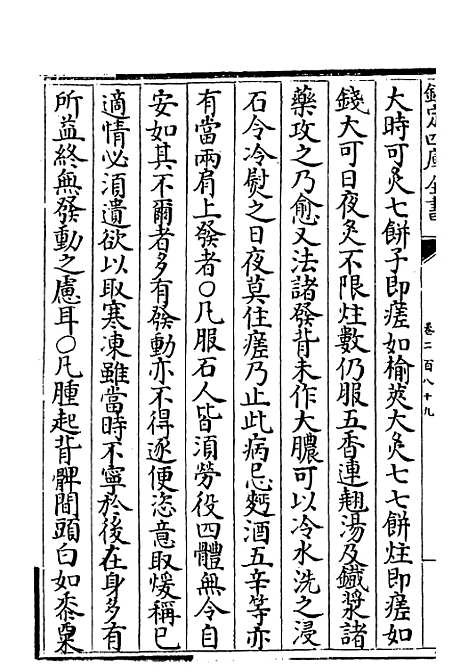 欽定四庫全書
卷二百八十九
大時可灸七餅子即瘥如榆莢大灸七七餅炷即瘥如
錢大可日夜灸不限炷數仍服五香連翹湯及鐵漿諸
藥攻之乃愈又法諸發背未作大膿可以冷水洗之浸
石令冷熨之日夜莫住瘥乃止此病忌麪酒五辛等亦
有當兩肩上發者○凡服石人皆須勞役四體無令自
安如其不爾者多有發動亦不得逐便恣意取煖稱已
適情必須遺欲以取寒凍雖當時不寧於後在身多有
所益終無發動之慮耳○凡腫起背髀間頭白如黍粟